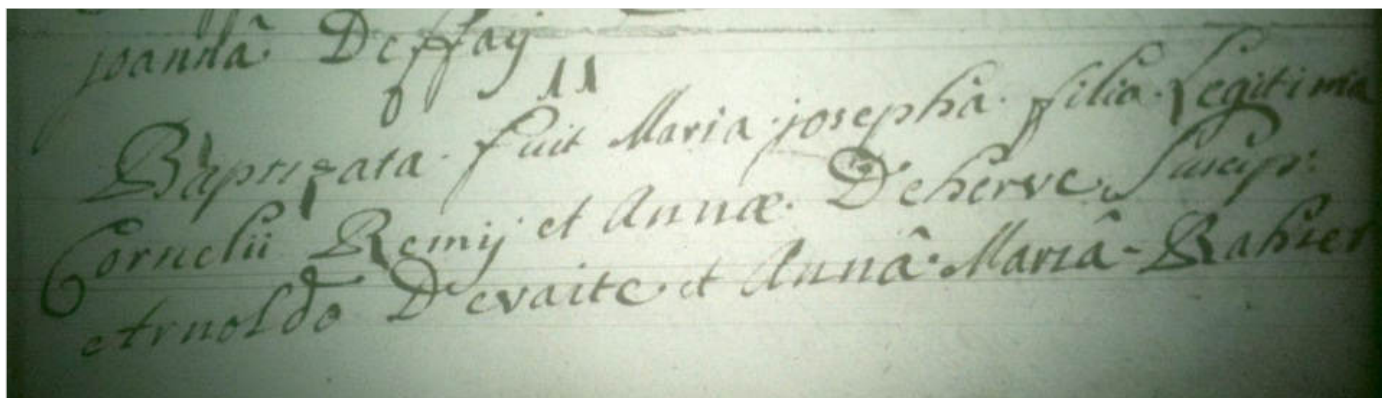 joannâ Deffaÿ
11
Baptizata fuit Maria josepha filia Legitima
Cornelii Remij et Annæ Deherve Suscepr:
Arnoldo Devaite et Annâ Mariâ Rahier